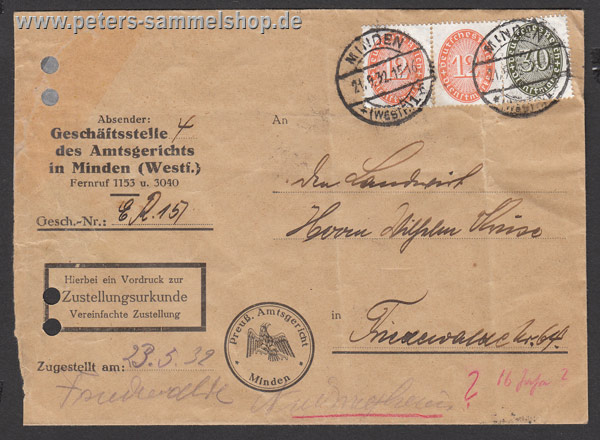 www.peters-sammelshop.de
MINDEN
21.9.32.15-16
* (WESTF.) 1 *
Deutsches Reich
Dienstmarke
12
Deutsches Reich
Dienstmarke
12
MINDEN
Deutsches Reich
Dienstmarke
30
Absender:
Geschäftsstelle 4
des Amtsgerichts
in Minden (Westf.)
Fernruf 1153 u. 3040
Gesch.-Nr.:
An
den Landwirt
Herrn Wilhelm Kruse
in Friedewalde Nr. 64.
Hierbei ein Vordruck zur
Zustellungsurkunde
Vereinfachte Zustellung
Preuß. Amtsgericht
Minden
Zugestellt am: 23.5.32
Friedewalde
?